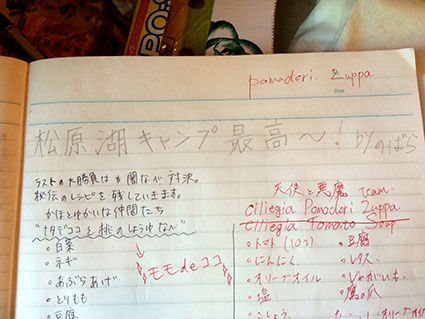 pomodori. Zuppa.
松原湖キャンプ最高〜！by のばら
ラストの大勝負は闇なべ対決。
秘伝のレシピを残していきます。
かほとゆかいな仲間たち
"ナタデココと桃のしょうゆなべ"
。白菜
。ネギ
。あぶらあげ
。とりもも
。豆腐
モモdeココ
天使と悪魔 team.
Ciliegia Pomodori Zuppa
Ciliegia Tomato Soup
。トマト(10コ)
。にんにく
。オリーブオイル
。塩
。こしょう
。豆腐
。レタス
。じゃがいも
。鷹の爪
オリーブオイル